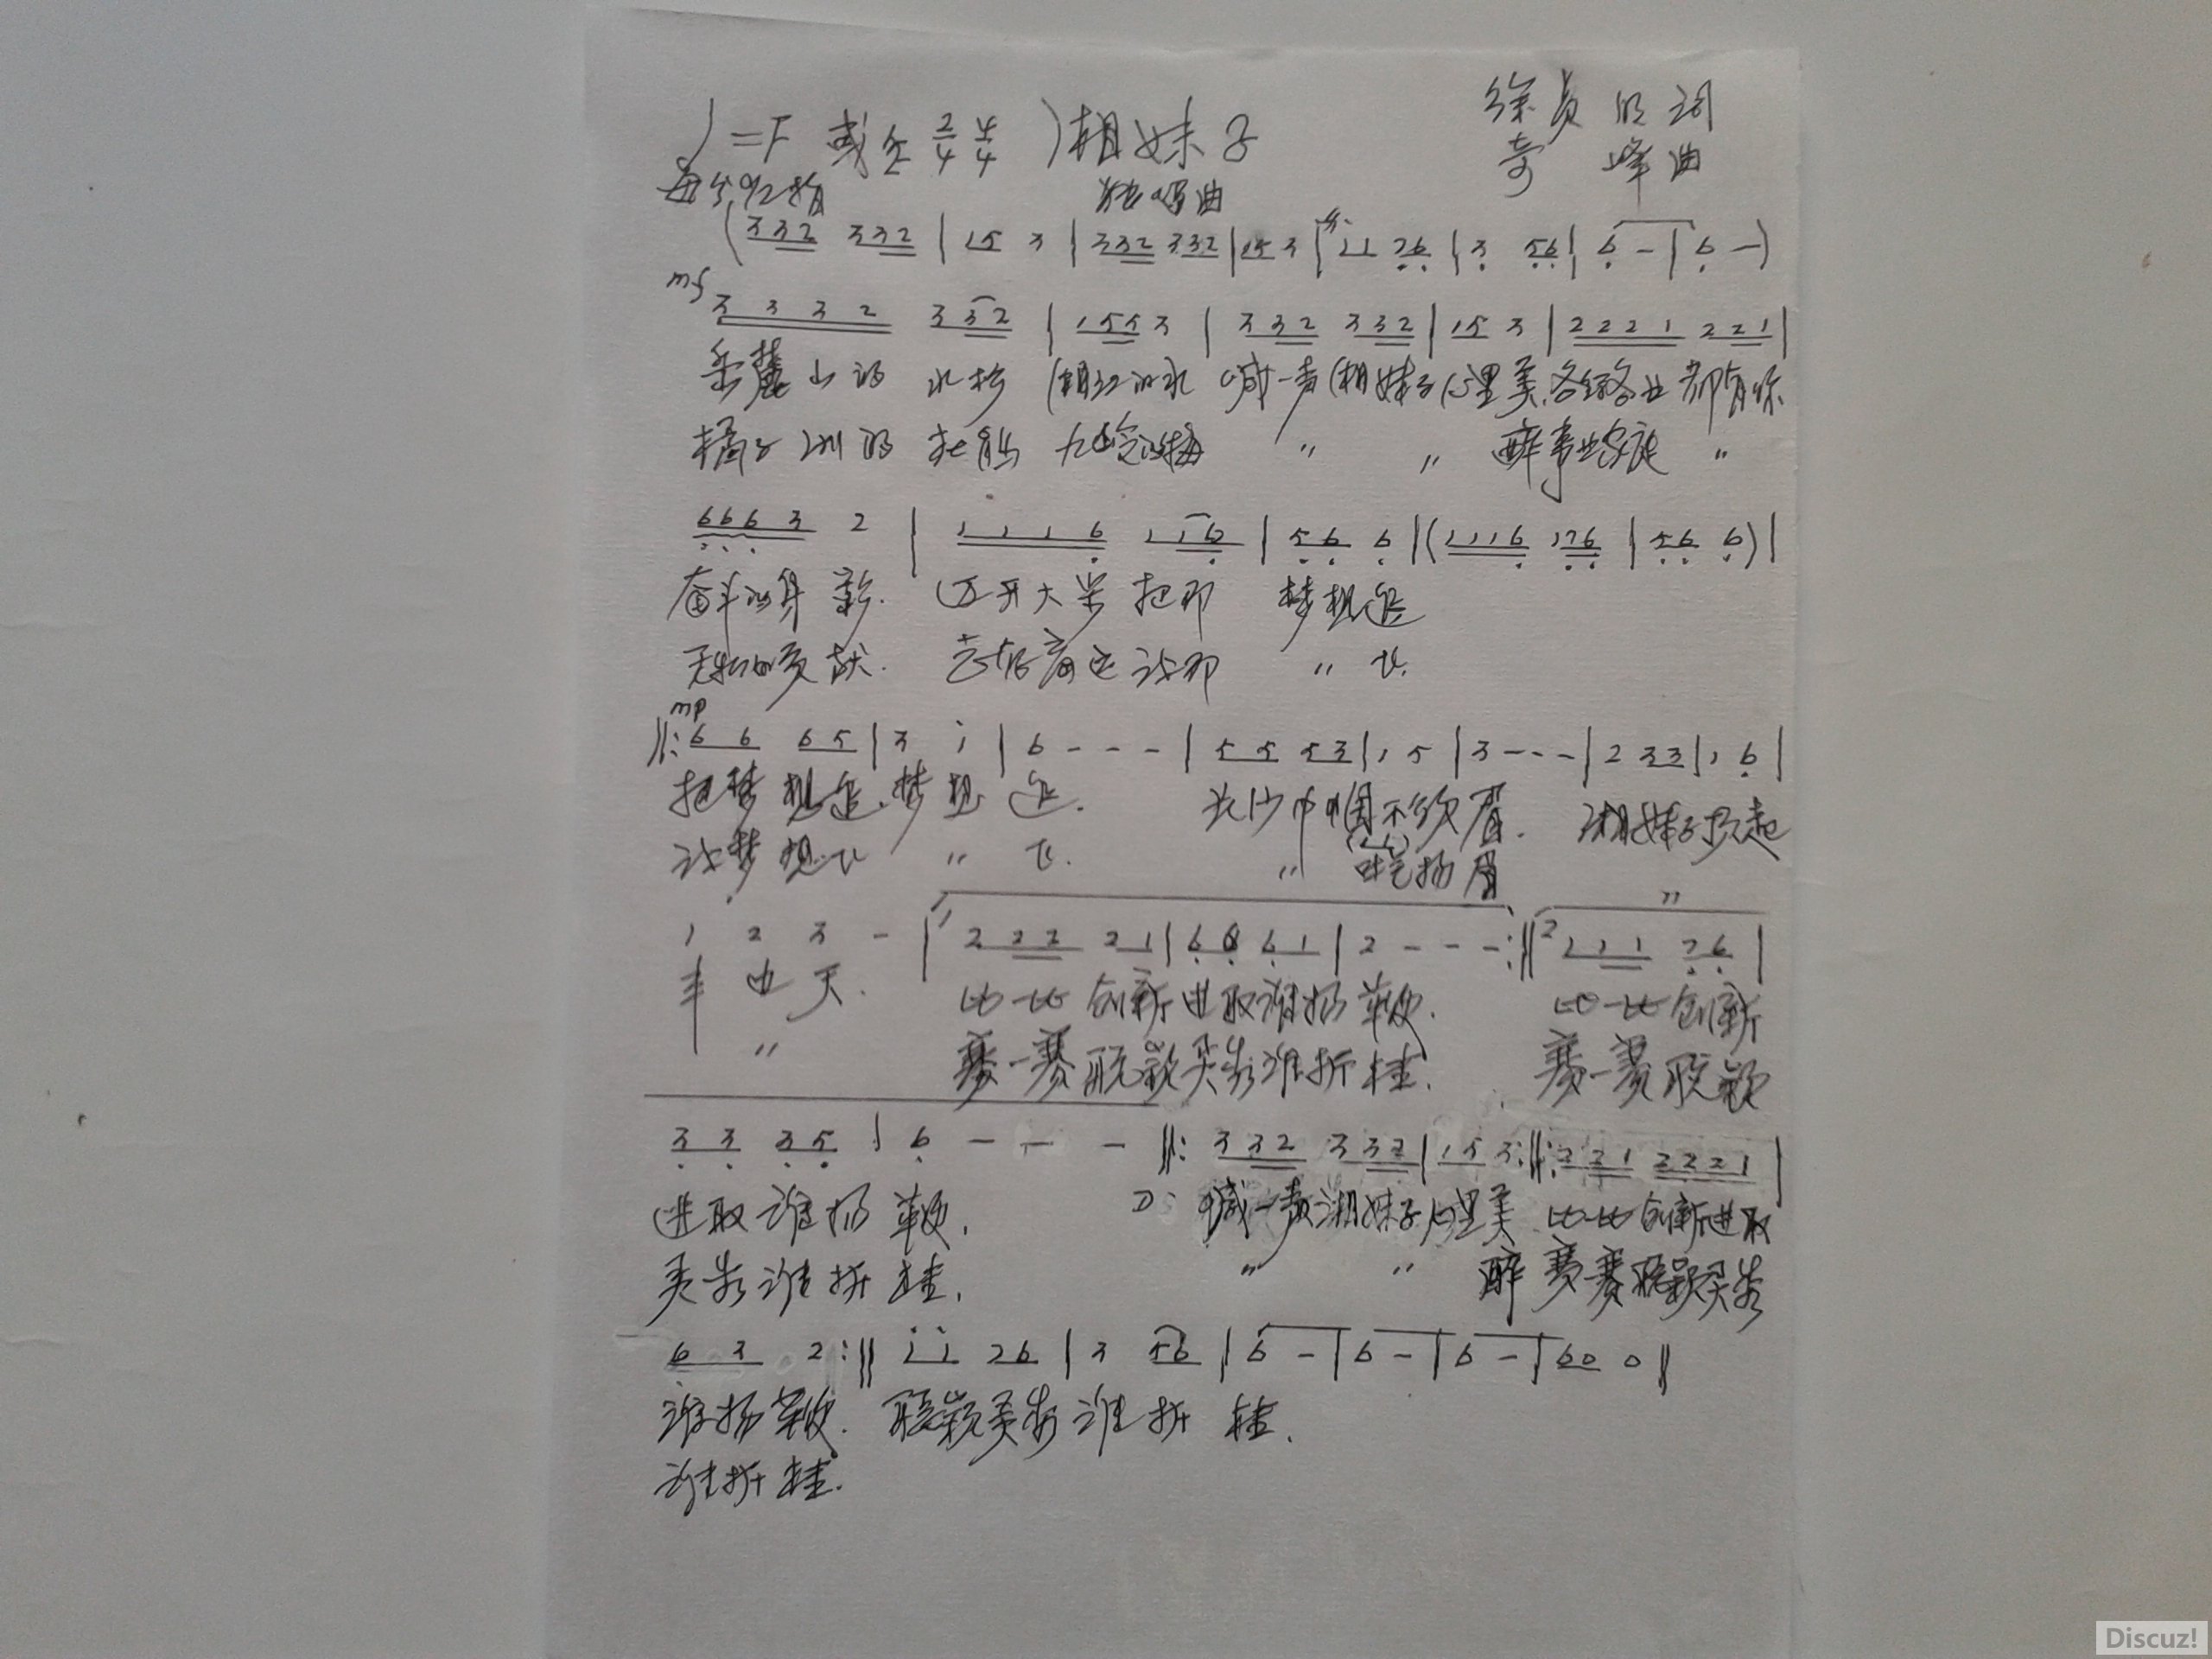 1=F 或 2/4 4/4 湘妹子 徐 明 词
每分92拍 独唱曲 奇峰 曲
(3 3 2 3 3 2 | 1 5 3 | 3 3 2 3 3 2 | 1 5 3 | 1 1 2 6 | 3 5 6 | 6 - | 6 -)
mf 3 3 3 2 3 3 2 | 1 5 5 3 | 3 3 2 3 3 2 | 1 5 3 | 2 2 2 1 2 2 1 |
岳麓山的 水杉 湘江的水 喊一声湘妹子心里美.各行各业都有你
橘子洲的 " " 醉事业 "
6 6 6 3 2 | 1 1 1 6 1 1 6 | 5 6 6 | (1 1 1 6 1 7 6 | 5 6 6) |
奋斗的身影. 迈开大步 把那 梦想追
无私的贡献. 让那 " 飞.
mp
||: 6 6 6 5 | 3 i | 6 - - - | 5 5 5 3 | 1 5 | 3 - - - | 2 3 3 | 1 6 |
把梦想追.梦想 追. 长沙巾帼不须眉. 湘妹子撑起
让梦想飞 " 飞. " 吐气扬眉 "
1 2 3 - | 1 2 2 2 2 1 | 6 6 6 1 | 2 - - - :|| 2 1 1 1 7 6 |
半边天. 比一比创新进取谁扬鞭. 比一比创新
" 赛一赛脱颖 谁折桂. 赛一赛脱颖
3 3 3 5 | 6 - - - ||: 3 3 2 3 3 2 | 1 5 3 :||: 2 2 1 2 2 2 1 |
进取谁扬鞭. 喊一声湘妹子心里美 比一比创新进取
谁折桂. " " 醉 赛一赛脱颖
6 3 2 :|| i i 2 6 | 3 5 6 | 6 - | 6 - | 6 - | 6 0 0 ||
谁扬鞭. 脱颖 谁折桂.
谁折桂.
Discuz!